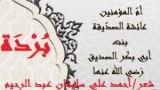 أم المؤمنين
عائشة الصديقة
بنت
أبي بكر الصديق
رضي الله عنها
بُرْدَة
شعر/أحمد علي سليمان عبد الرحيم